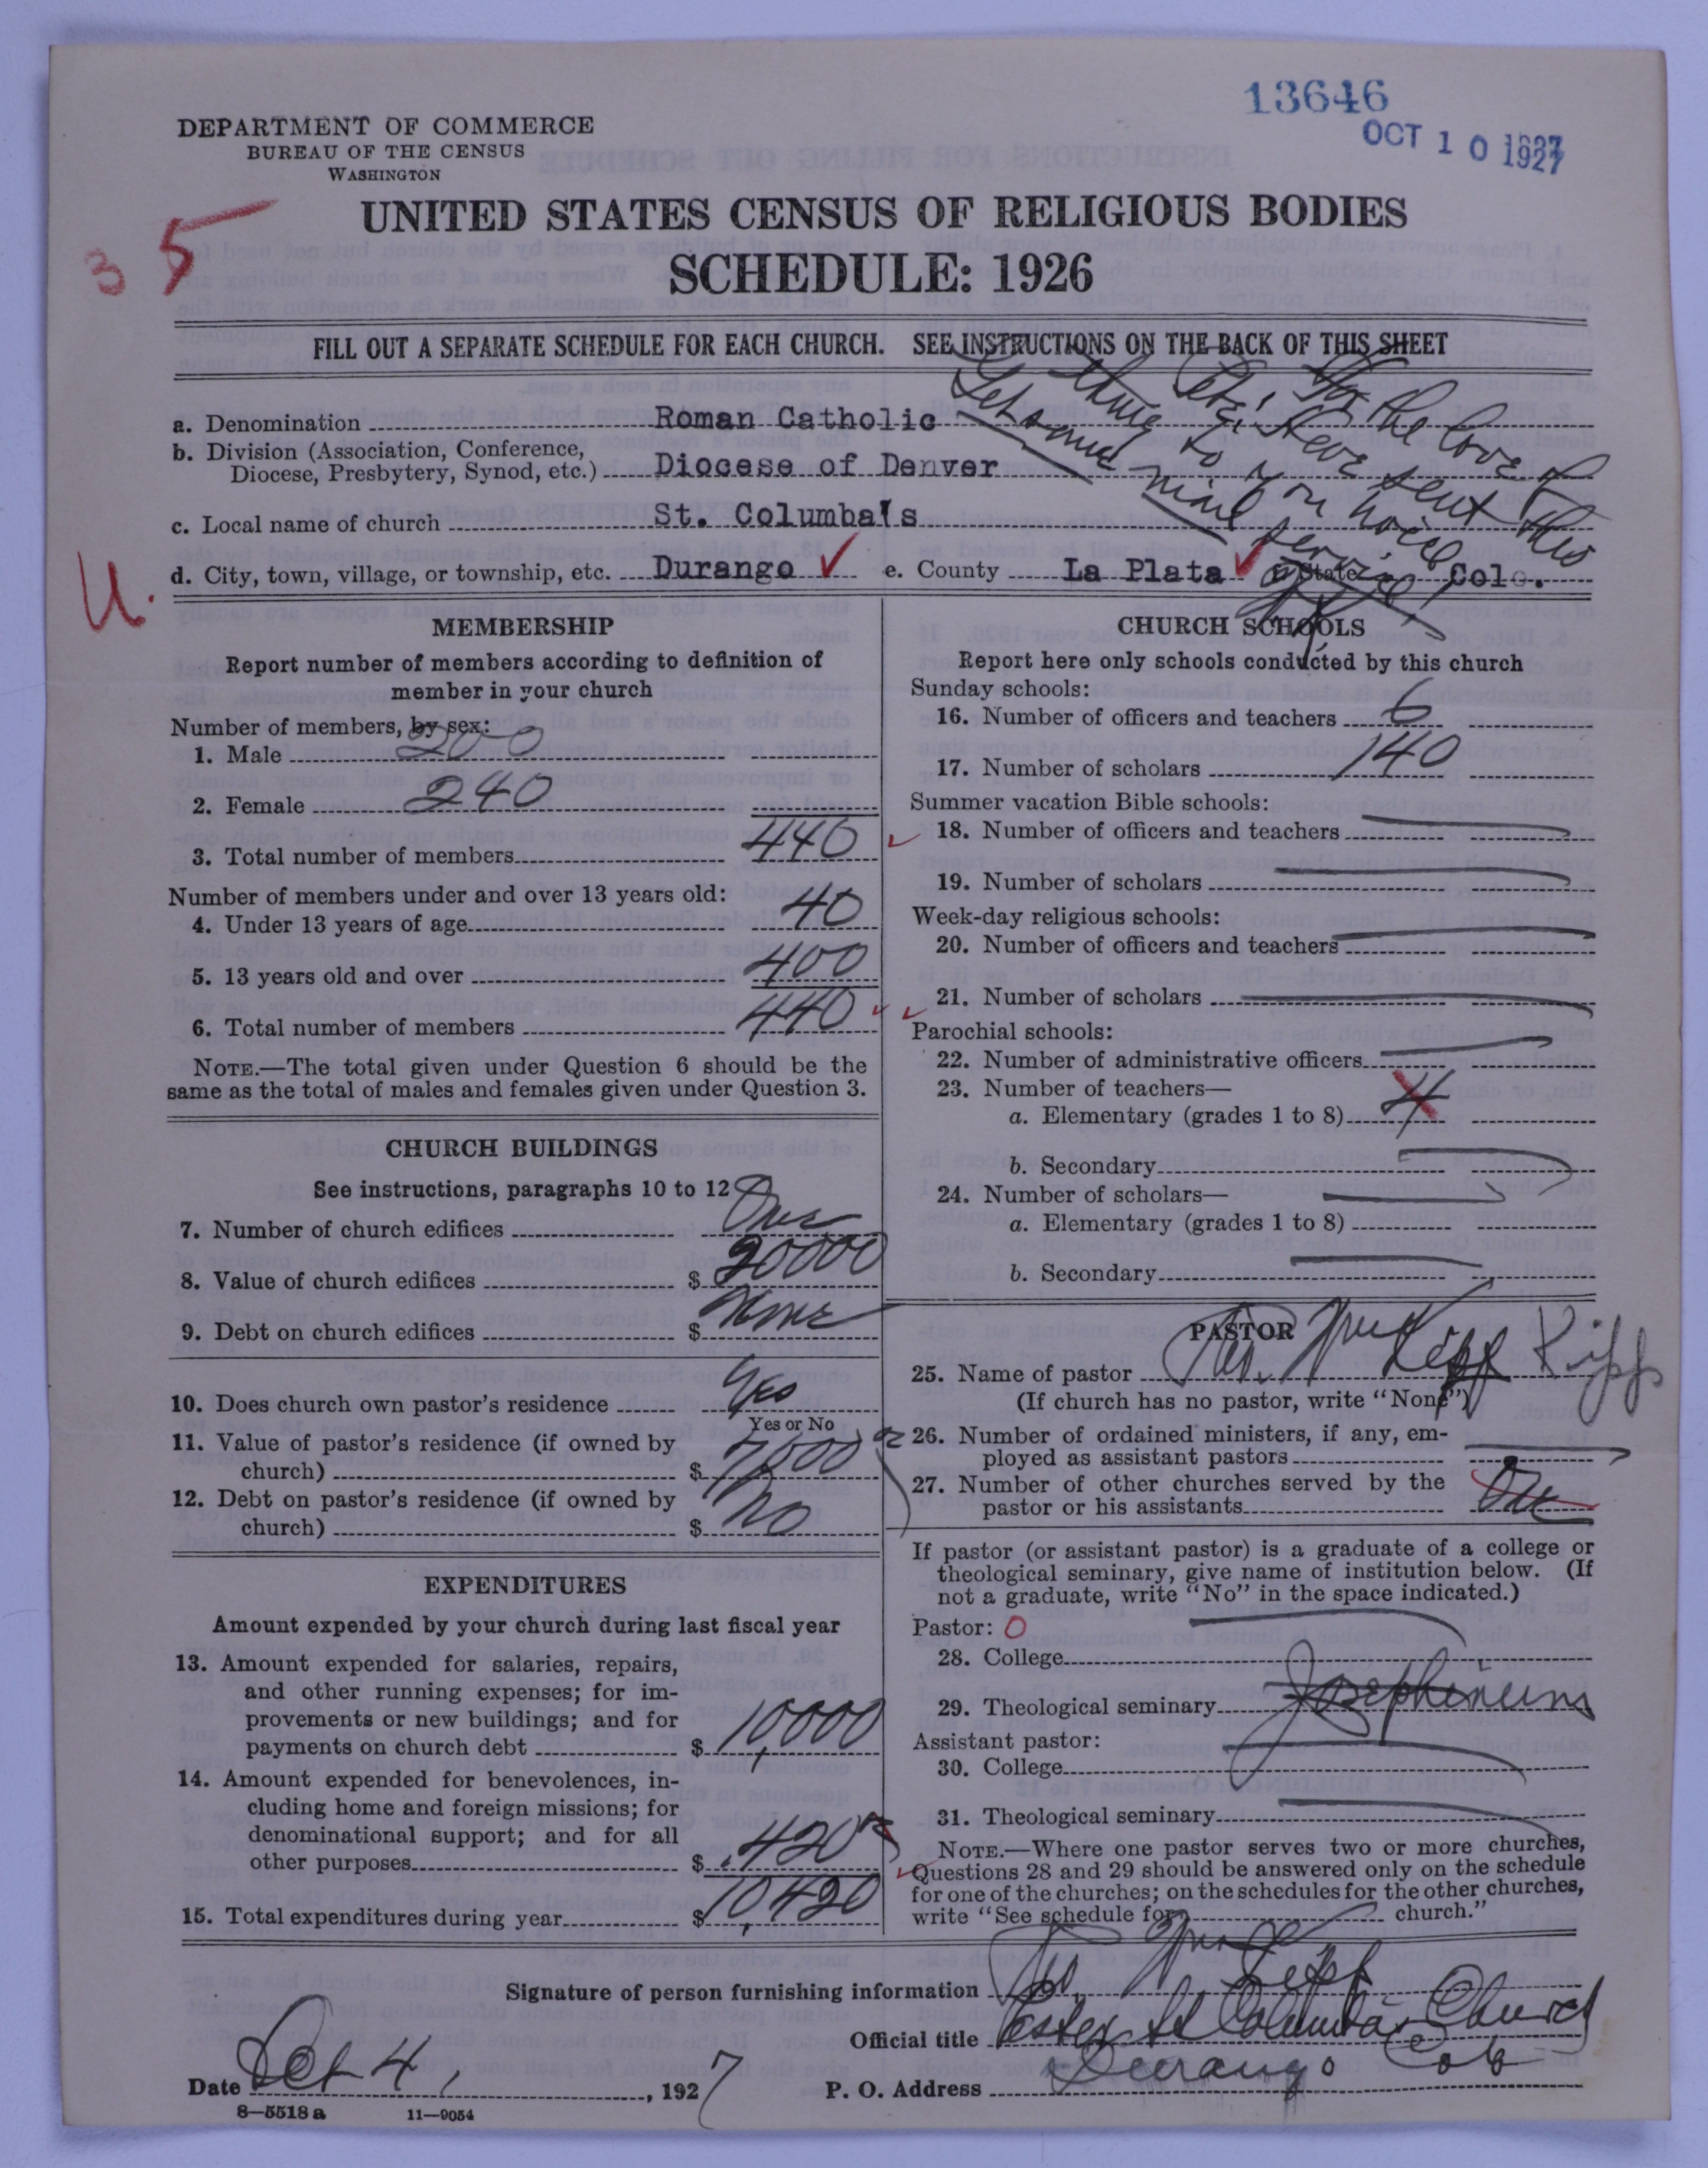 13646
OCT 10 1927
DEPARTMENT OF COMMERCE
BUREAU OF THE CENSUS
WASHINGTON
35
UNITED STATES CENSUS OF RELIGIOUS BODIES
SCHEDULE: 1926
FILL OUT A SEPARATE SCHEDULE FOR EACH CHURCH. SEE INSTRUCTIONS ON THE BACK OF THIS SHEET
For the love of
Pete! Have sent this
thing to you twice!
Get some mail service!
a. Denomination Roman Catholic
b. Division (Association, Conference,
Diocese, Presbytery, Synod, etc.) Diocese of Denver
c. Local name of church St. Columba's
d. City, town, village, or township, etc. Durango ✓ e. County La Plata ✓ State Colo.
U.
MEMBERSHIP
Report number of members according to definition of
member in your church
Number of members, by sex:
1. Male 200
2. Female 240
3. Total number of members 440
Number of members under and over 13 years old:
4. Under 13 years of age 40
5. 13 years old and over 400
6. Total number of members 440
NOTE.—The total given under Question 6 should be the
same as the total of males and females given under Question 3.
CHURCH BUILDINGS
See instructions, paragraphs 10 to 12
7. Number of church edifices One
8. Value of church edifices $ 20000
9. Debt on church edifices $ None
10. Does church own pastor's residence Yes
Yes or No
11. Value of pastor's residence (if owned by
church) $ 7,000
12. Debt on pastor's residence (if owned by
church) $ No
EXPENDITURES
Amount expended by your church during last fiscal year
13. Amount expended for salaries, repairs,
and other running expenses; for im-
provements or new buildings; and for
payments on church debt $ 10,000
14. Amount expended for benevolences, in-
cluding home and foreign missions; for
denominational support; and for all
other purposes $ 420
15. Total expenditures during year $ 10,420
CHURCH SCHOOLS
Report here only schools conducted by this church
Sunday schools:
16. Number of officers and teachers 6
17. Number of scholars 140
Summer vacation Bible schools:
18. Number of officers and teachers
19. Number of scholars
Week-day religious schools:
20. Number of officers and teachers
21. Number of scholars
Parochial schools:
22. Number of administrative officers
23. Number of teachers—
a. Elementary (grades 1 to 8) 4
b. Secondary
24. Number of scholars—
a. Elementary (grades 1 to 8)
b. Secondary
PASTOR
25. Name of pastor Rev. Wm Kipp Kipp
(If church has no pastor, write "None")
26. Number of ordained ministers, if any, em-
ployed as assistant pastors
27. Number of other churches served by the
pastor or his assistants One
If pastor (or assistant pastor) is a graduate of a college or
theological seminary, give name of institution below. (If
not a graduate, write "No" in the space indicated.)
Pastor: O
28. College
29. Theological seminary Josephinum
Assistant pastor:
30. College
31. Theological seminary
NOTE.—Where one pastor serves two or more churches,
Questions 28 and 29 should be answered only on the schedule
for one of the churches; on the schedules for the other churches,
write "See schedule for church."
Signature of person furnishing information Rev. Wm Kipp
Official title Pastor St Columba Church
Date Oct 4, 1927 P. O. Address Durango Colo
8—5518a 11—9054